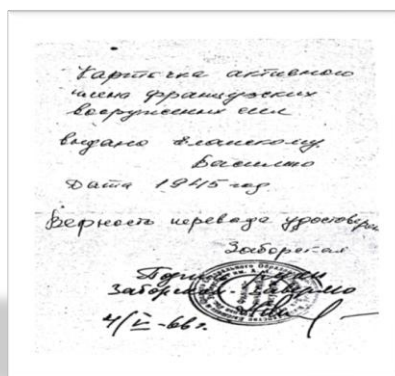 Карточка активного
члена французских
вооруженных сил
выдано Еланскому
Василию
Дата 1945 год.
Верность перевода удостоверяю
Заборская
Заборской заверяю
4/V-66г.